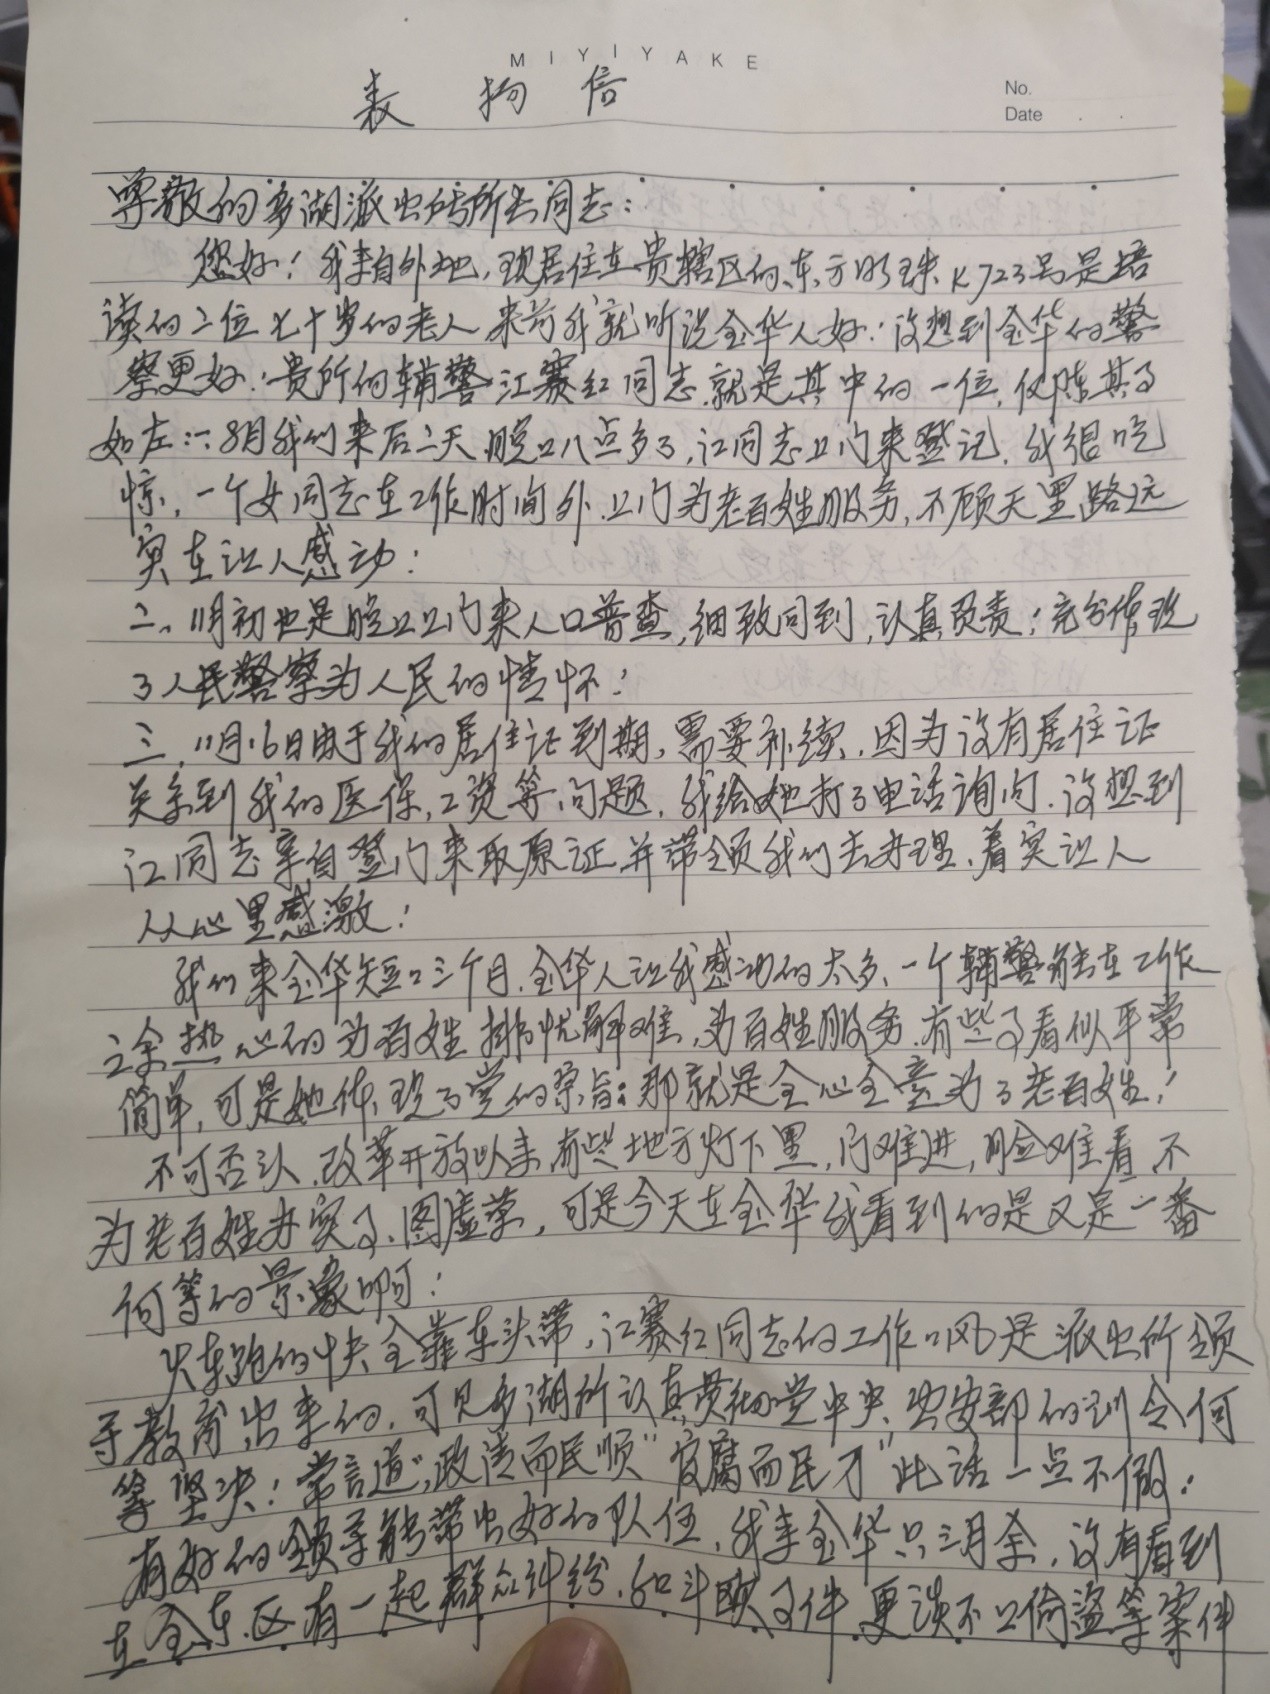 MIYIYAKE
表扬信
No.
Date
尊敬的多湖派出所所长同志:
您好!我来自外地,现居住在贵辖区的东方明珠K723号是陪
读的二位七十岁的老人来前我就听说金华人好:没想到金华的警
察更好!贵所的辅警江赛红同志就是其中的一位,仅陈其事
如左:一、8月我们来后二天晚上八点多了,江同志上门来登记,我很吃
惊,一个女同志在工作时间外上门为老百姓服务,不顾天黑路远
实在让人感动:
二、11月初也是晚上上门来人口普查,细致问到,认真负责;充分体现
了人民警察为人民的情怀!
三、11月16日由于我的居住证到期,需要补续,因为没有居住证
关系到我的医保,工资等问题,我给她打了电话询问,没想到
江同志亲自登门来取原证并带领我们去办理,着实让人
从心里感激!
我们来金华短短三个月,金华人让我感动的太多,一个辅警能在工作
之余热心的为百姓排忧解难,为百姓服务,有些事看似平常
简单,可是她体现了党的宗旨:那就是全心全意为了老百姓!
不可否认,改革开放以来,有些地方灯下黑,门难进,脸难看,不
为老百姓办实事,图虚荣,可是今天在金华我看到的是又是一番
何等的景象啊!
火车跑的快全靠车头带,江赛红同志的工作作风是派出所领
导教育出来的,可见多湖所认真贯彻党中央公安部的训令何
等坚决!常言道"政清而民顺""官腐而民刁"此话一点不假:
有好的领导能带出好的队伍,我来金华只三月余,没有看到
在金东区有一起群众纠纷,和斗殴事件,更谈不上偷盗等案件